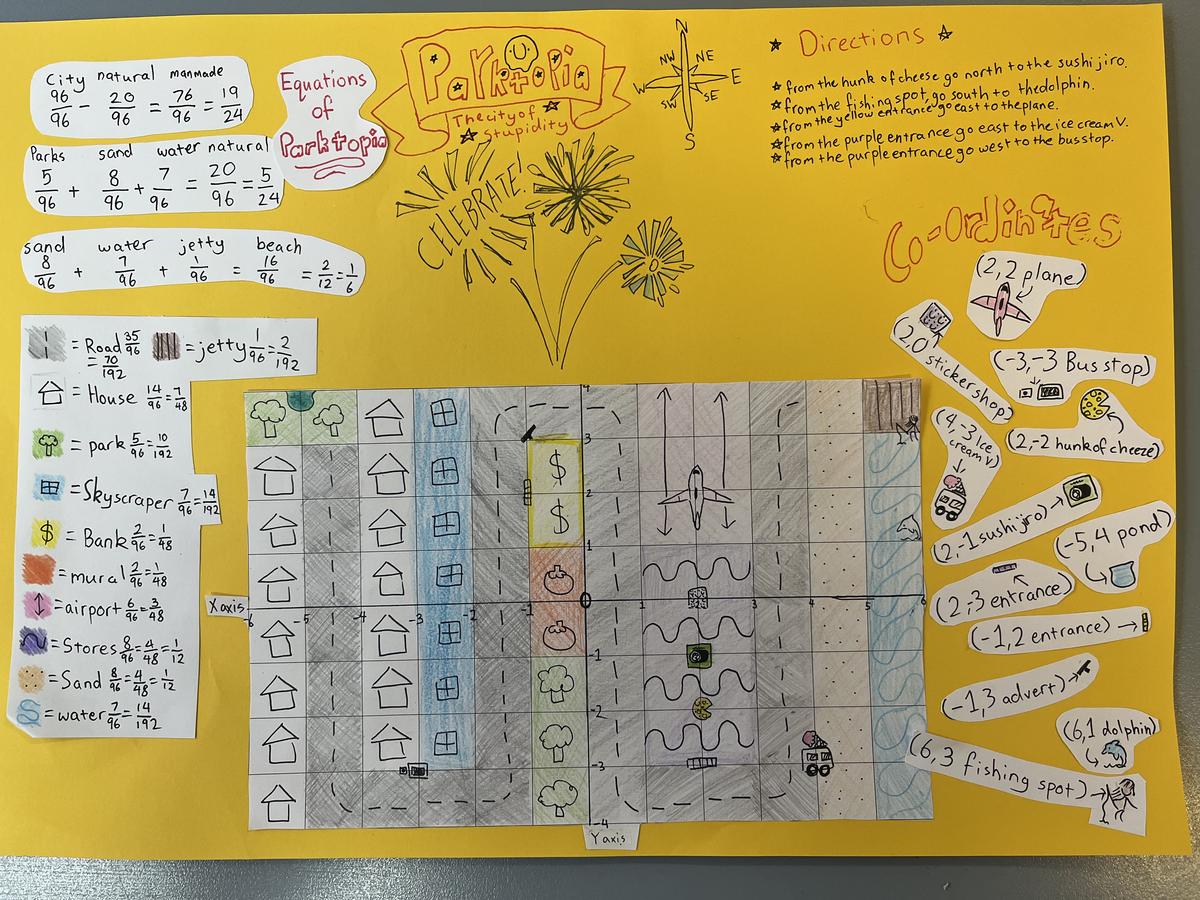 City natural manmade
96/96 - 20/96 = 76/96 = 19/24
Parks sand water natural
5/96 + 8/96 + 7/96 = 20/96 = 5/24
sand water jetty beach
8/96 + 7/96 + 1/96 = 16/96 = 2/12 = 1/6
Equations
of
Parktopia
Parktopia
The city of
stupidity
CELEBRATE!
N
NW NE
W E
SW SE
S
Directions
from the hunk of cheese go north to the sushi jiro.
from the fishing spot, go south to the dolphin.
from the yellow entrance go east to the plane.
from the purple entrance go east to the ice cream V.
from the purple entrance go west to the bus stop.
Co-Ordinates
(2,2 plane)
(2,0 sticker shop)
(-3,-3 Bus stop)
(2,-2 hunk of cheeze)
(4,-3 Ice cream V)
(2,-1 sushi jiro)
(-5,4 pond)
(2,-3 entrance)
(-1,2 entrance)
(-1,3 advert)
(6,1 dolphin)
(6,3 fishing spot)
= Road 35/96 = 70/192
= jetty 1/96 = 2/192
= House 14/96 = 7/48
= park 5/96 = 10/192
= Skyscraper 7/96 = 14/192
= Bank 2/96 = 1/48
= mural 2/96 = 1/48
= airport 6/96 = 3/48
= Stores 8/96 = 4/48 = 1/12
= Sand 8/96 = 4/48 = 1/12
= water 7/96 = 14/192
4
3
2
1
X axis
-6 -5 -4 -3 -2 -1 0 1 2 3 4 5 6
-1
-2
-3
-4
Y axis
$
$
$